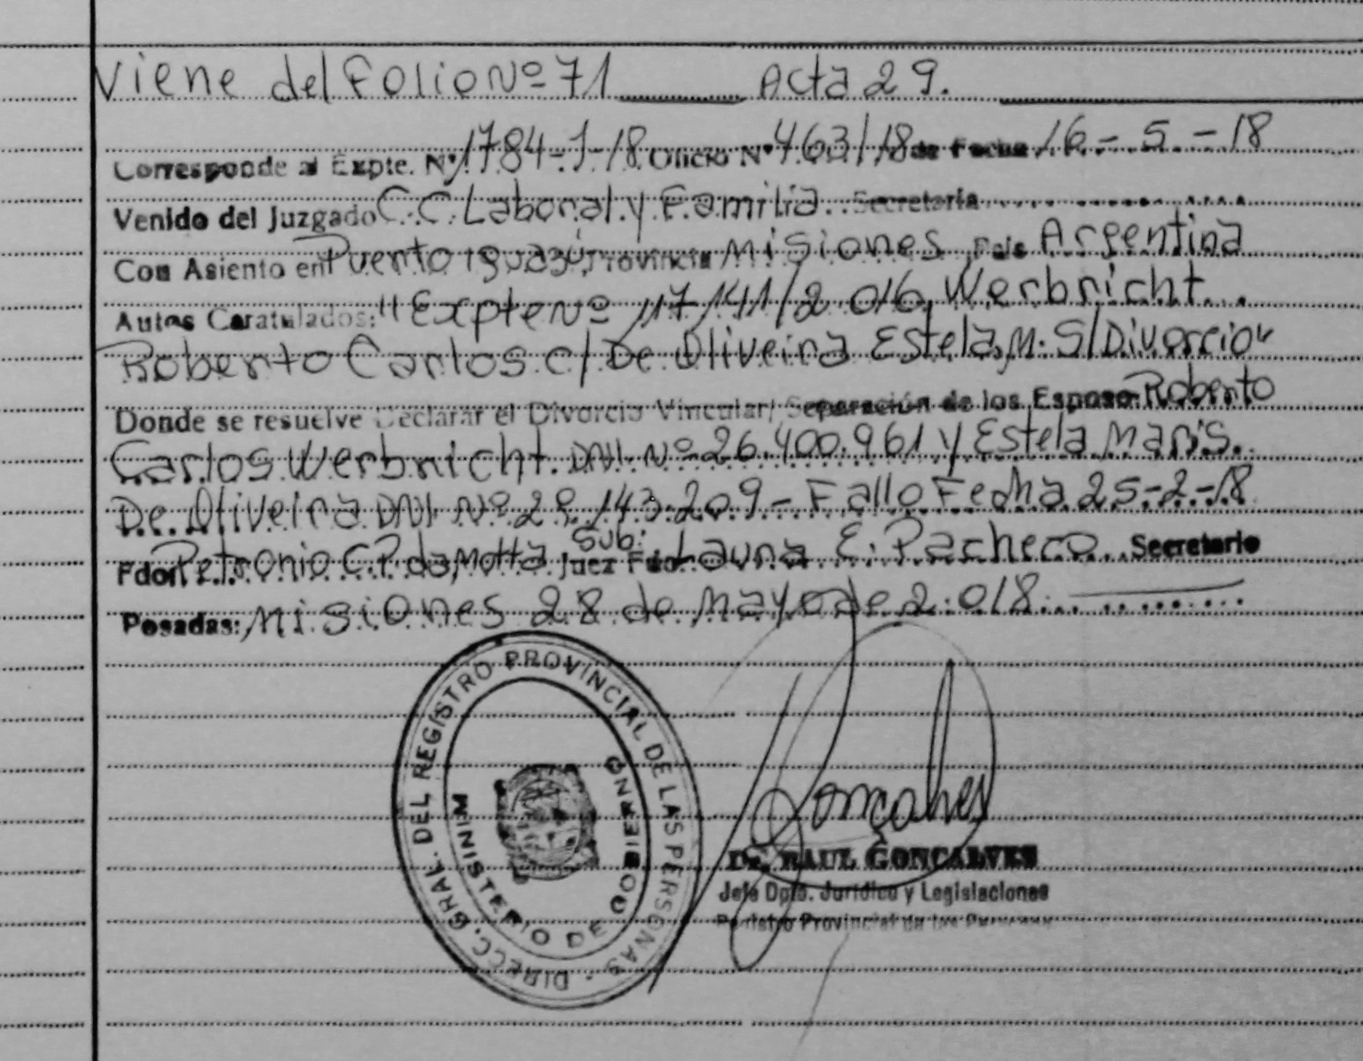 Viene del Folio Nº 71 ____ Acta 29.
Corresponde al Expte. Nº 1784-J-18 Oficio Nº 463/18 de Fecha 16-5-18
Venido del Juzgado C.C. Laboral y Familia. Secretaría
Con Asiento en Puerto Iguazú Provincia Misiones País Argentina
Autos Caratulados: "Expte Nº 17141/2016, Werbricht
Roberto Carlos c/ De Oliveira Estela M. S/Divorcio"
Donde se resuelve Declarar el Divorcio Vincular/ Separación de los Esposos Roberto
Carlos Werbricht. DNI. Nº 26.400.961 y Estela Maris.
De Oliveira DNI Nº 29.143.209 - Fallo Fecha 25-2-18
Fdo: Petronio C.P. da Motta Sub. Juez Fdo. Laura E. Pacheco Secretario
Posadas: Misiones 28 de Mayo de 2.018
DIRECC. GRAL. DEL REGISTRO PROVINCIAL DE LAS PERSONAS
MINISTERIO DE GOBIERNO
Goncalves
Dr. RAUL GONCALVES
Jefe Dpto. Jurídico y Legislaciones
Registro Provincial de las Personas